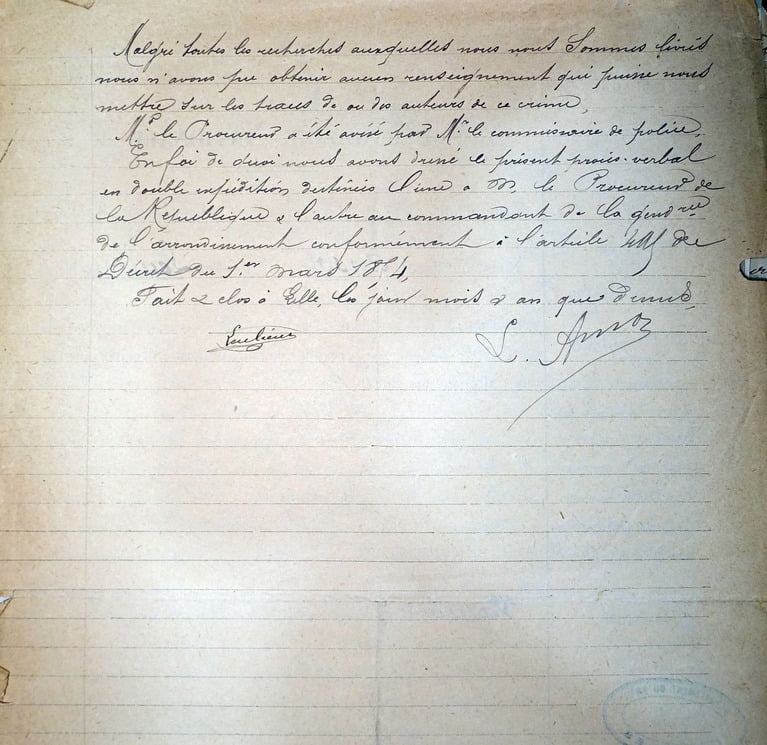 Malgré toutes les recherches auxquelles nous nous sommes livrés
nous n'avons pu obtenir aucun renseignement qui puisse nous
mettre sur les traces de ou des auteurs de ce crime,
Mr le Procureur a été avisé par Mr le commissaire de police,
En foi de quoi nous avons dressé le présent procès-verbal
en double expédition destinées l'une à M. le Procureur de
la République & l'autre au commandant de la gendrie
de l'arrondissement conformément à l'article de
Décret du 1.er mars 1854,
Fait & clos à Lille, les jour mois & an que dessus,
L.